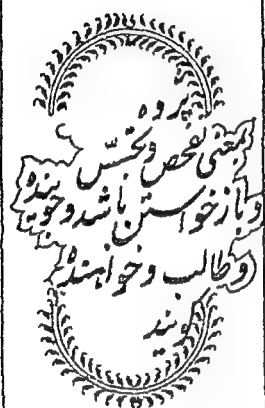 پروه
بمعنی تفحص و تجسس
و بازخواستن باشد و جوینده
و طالب و خواهنده را
گویند